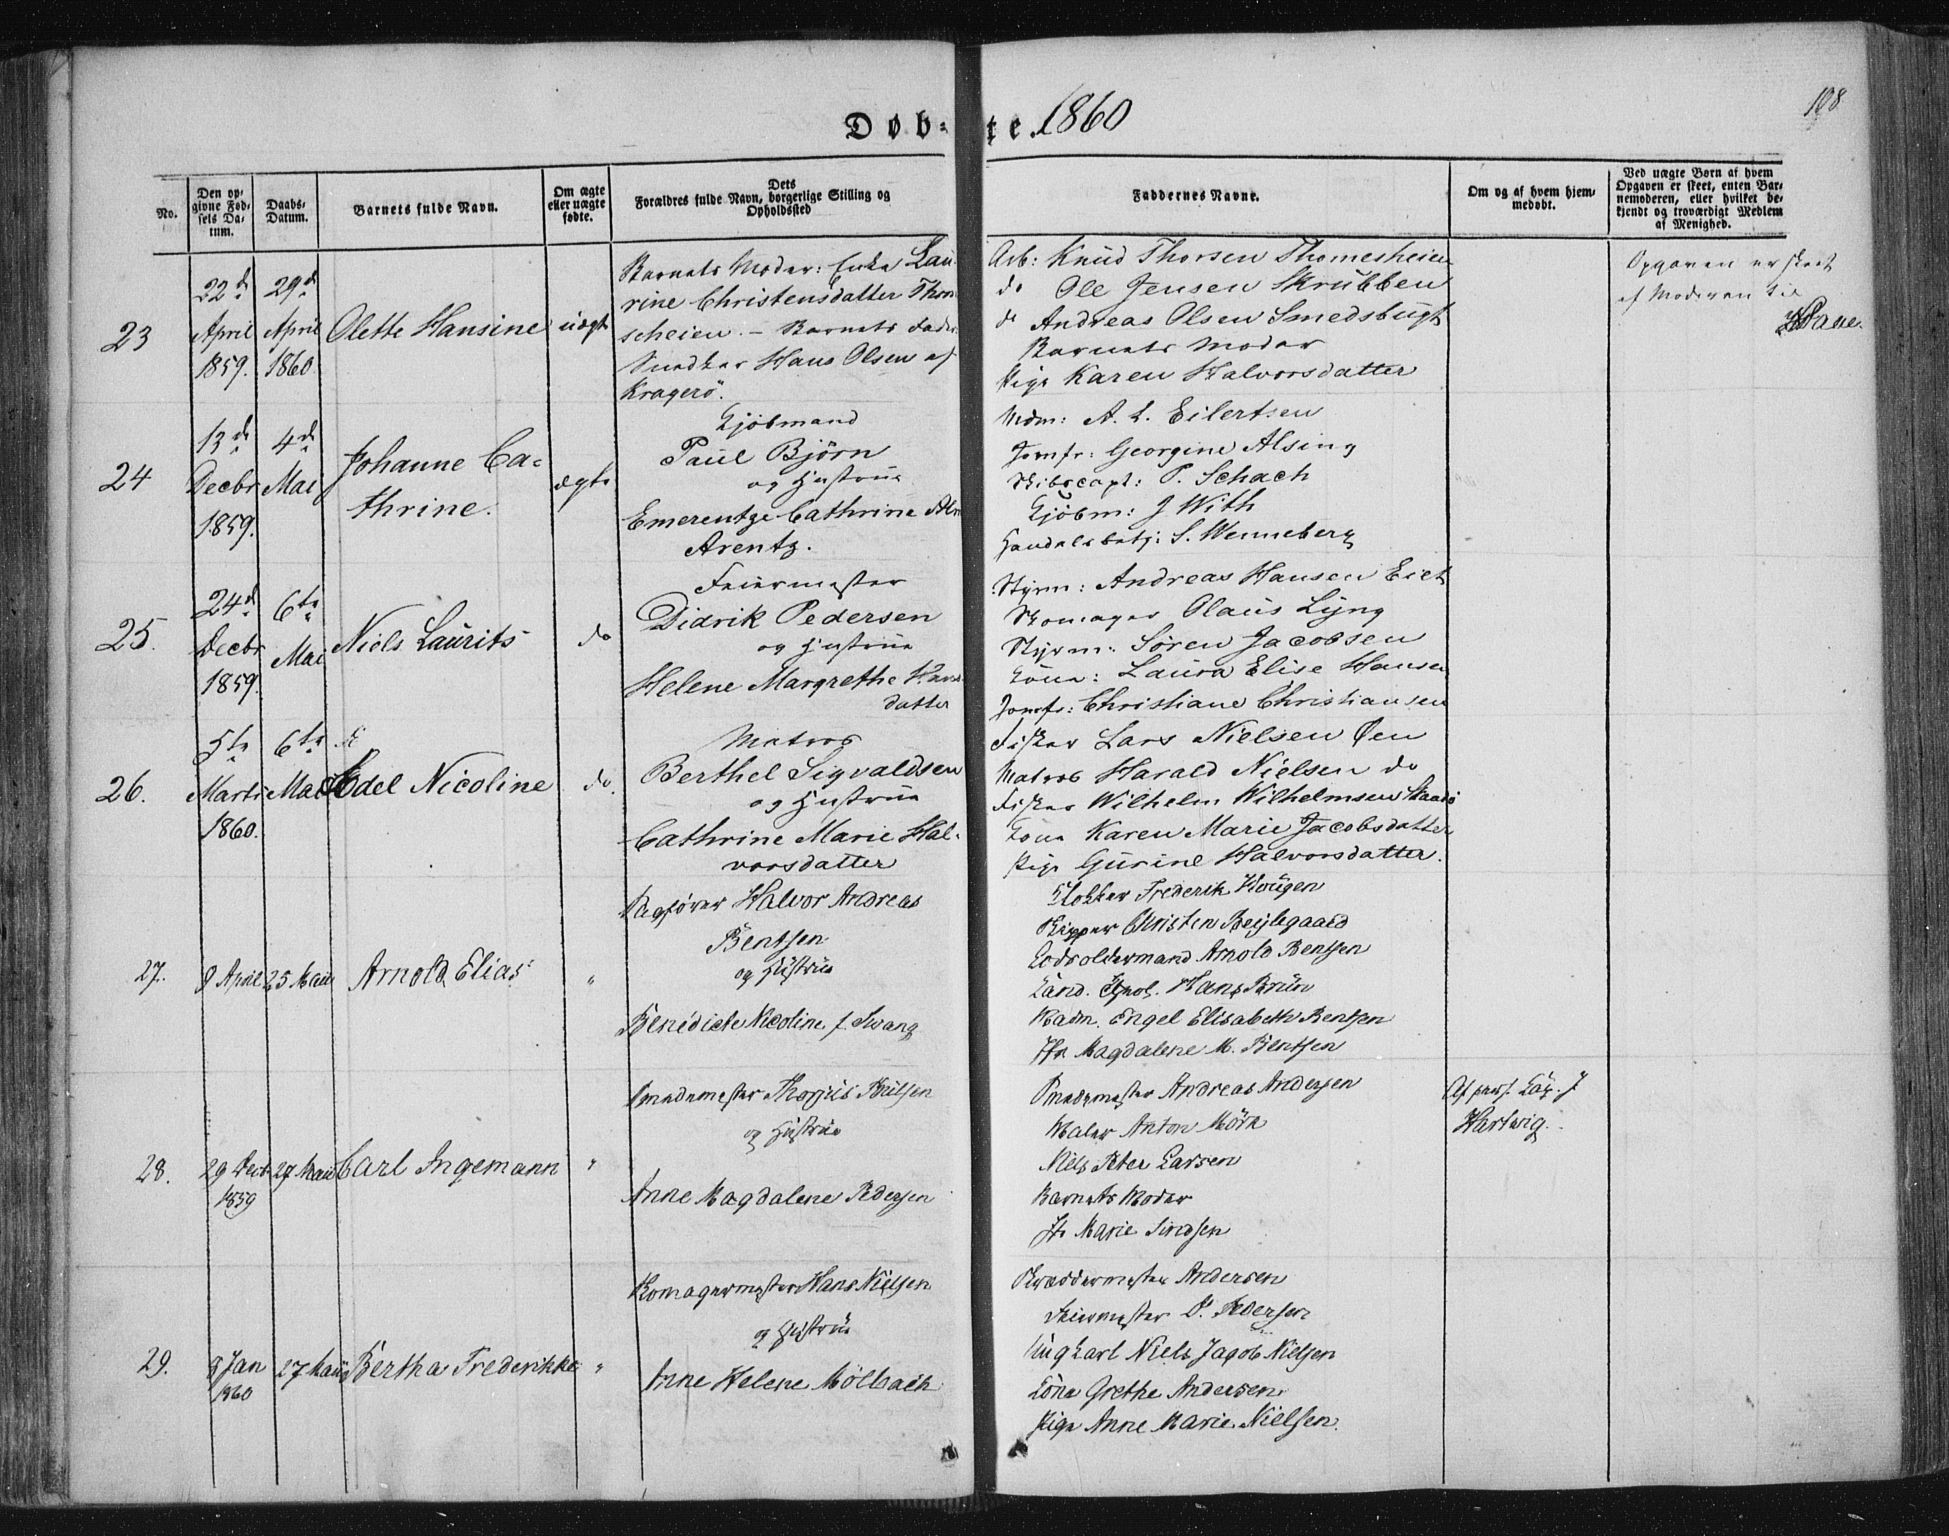 Døb- te. 1860
108
No.
Den op-
givne Fød-
sels Da-
tum.
Daabs-
Datum.
Barnets fulde Navn.
Om ægte
eller uægte
fødte.
Dets
Forældres fulde Navn, borgerlige Stilling og
Opholdssted
Faddernes Navne.
Om og af hvem hjem-
medøbt.
Ved uægte Børn af hvem
Opgaven er skeet, enten Bar-
nemoderen, eller hvilket be-
kjendt og troværdigt Medlem
af Menighed.
23
22d
April
1859.
29d
April
1860.
Olette Hansine
uægt
Barnets Moder: Enke Lau-
rine Christensdatter Thom
scheien. – Barnets Fader
Snedker Hans Olsen af
Kragerö.
Arb: Knud Thorsen Thomesheien
do Ole Jensen Skrubben
do Andreas Olsen Smedsbugt
Barnets Moder
Pige Karen Halvorsdatter
Opgaven er skeet
af Moderen til
24
13d
Decbr
1859.
4d
Mai
Johanne Ca-
thrine.
ægte
Kjöbmand
Paul Björn
og Hustrue
Emerentze Cathrine
Arentz.
Mdm: A. L. Eilertsen
Jomfr: Georgine Alsing
Skibscapt: P. Schach
Kjöbm: J With
Handelsbetj: S. Wenneberg
25.
24d
Decbr
1859.
6te
Mai
Niels Laurits
do
Feiermester
Didrik Pedersen
og Hustrue
Helene Margrethe
datter
Styrm: Andreas Hansen
Skomager Olaus Lyng
Styrm: Søren Jacobsen
Kone: Laura Elise Hansen
Jomfr: Christiane Christiansen
26.
5te
Marts
1860.
6te
Mai
Edel Nicoline
do.
Matros
Berthel Sigvaldsen
og Hustrue
Cathrine Marie Hal-
vorsdatter
Fisker Lars Nielsen Øen
Matros Harald Nielsen do
Fisker Wilhelm Wilhelmsen Skaadø
Kone Karen Marie Jacobsdatter
Pige Gurine Halvorsdatter.
27.
8 April
25 Maii
Arnold Elias
"
Sagfører Halvor Andreas
Bentsen
og Hustrue
Benedicte Nicoline f. Svang
Klokker Frederik Hougen
Skipper Christen
Lodsoldermand Arnold Bentsen
Cand. Hans Bruun
Madm. Engel Elisabeth Bentsen
Jfr Magdalene M. Bentsen
28.
29 Decbr
1859
27 Maii
Carl Ingemann
"
Smedemester Thorjus
og Hustrue
Anne Magdalene Pedersen
Smedemester Andreas Andersen
Maler Anton Mörk
Niels Peter Larsen
Barnets Moder
Jfr Marie
Af pers. Cap. J
Hartwig.
29.
8 Jan
1860
27 Maii
Bertha Frederikke
"
Skomagermester Hans Nielsen
og Hustrue
Anne Helene Mölbach
Skræddermester Andersen
Feiermester D. Pedersen
Ungkarl Niels Jacob Nielsen
Kone Grethe Andersen
Pige Anne Marie Nielsen.